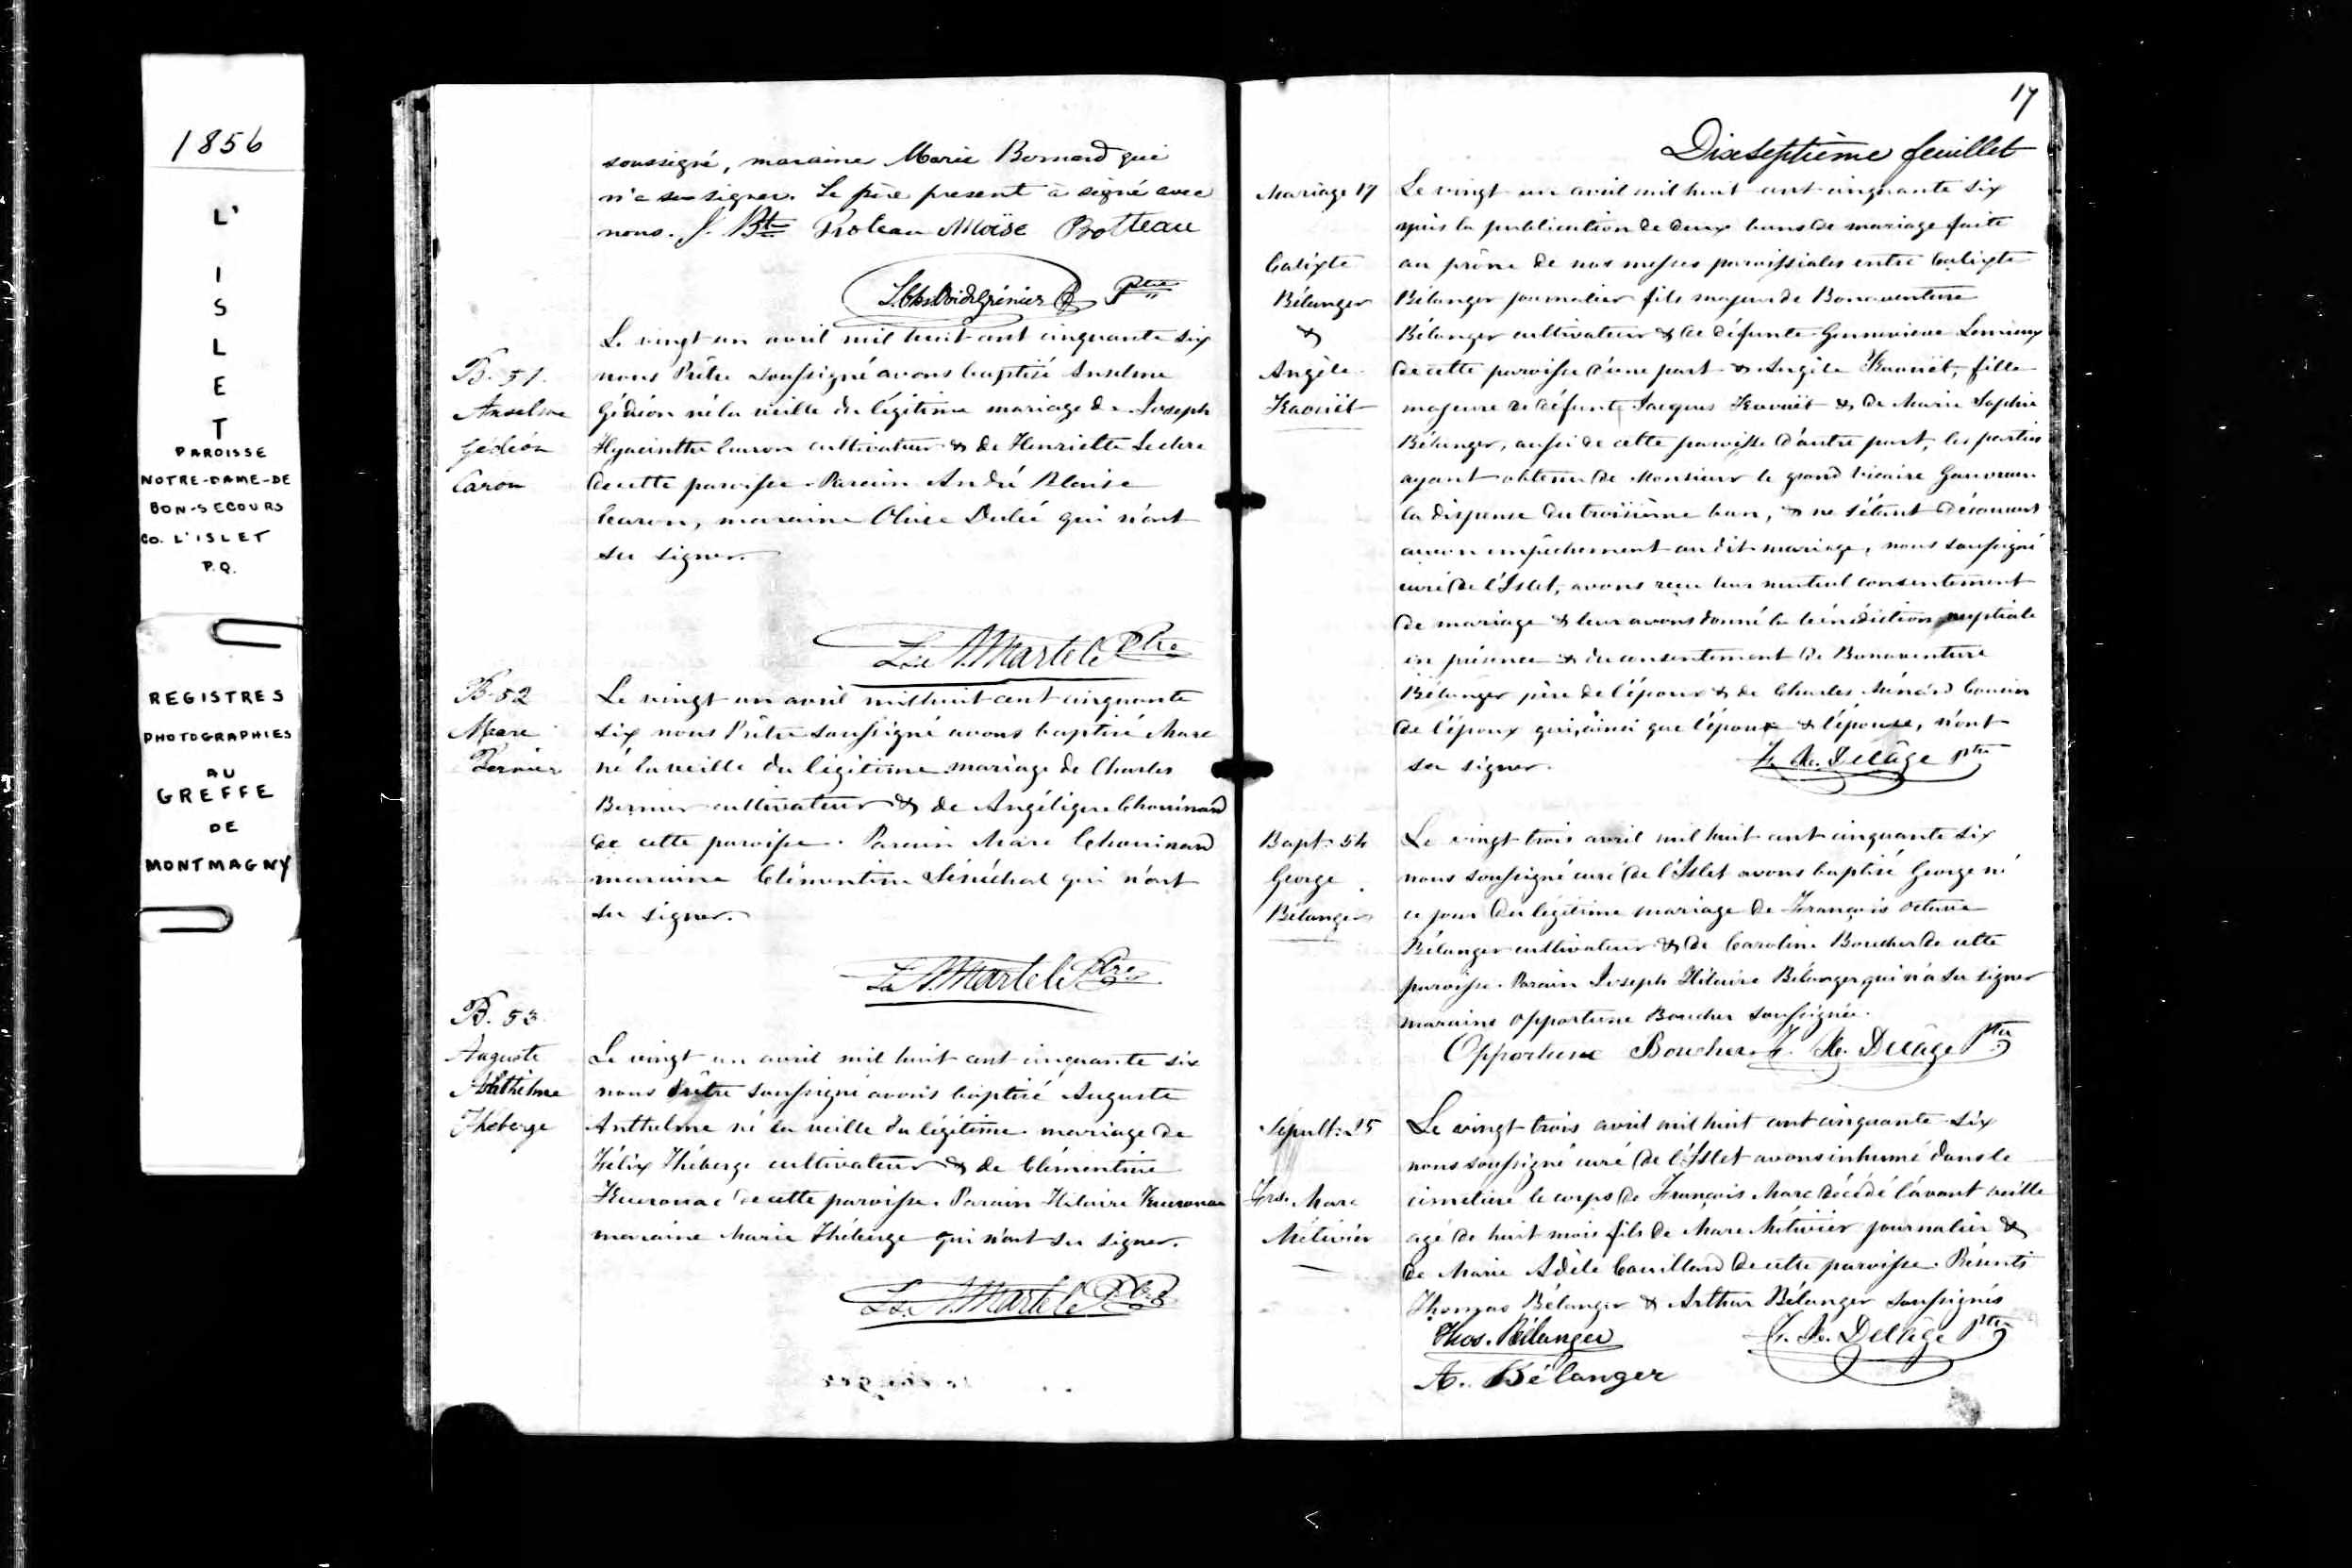 1856
L'
I
S
L
E
T
PAROISSE
NOTRE-DAME-DE
BON-SECOURS
CO. L'ISLET
P.Q.
REGISTRES
PHOTOGRAPHIES
AU
GREFFE
DE
MONTMAGNY
soussigné, maraine Marie Bernard qui
n'a su signer. Le père present à signé avec
nous. J. Bte Moïse
Ptre
Le vingt un avril mil huit cent cinquante six
B. 51.
nous Prêtre soussigné avons baptisé Anselme
Anselme
Gédéon né la veille du légitime mariage de Joseph
Gédéon
Hyacinthe Caron cultivateur & de Henriette Leclerc
Caron
de cette paroisse. Parain André Blaise
Caron, maraine Olive Dubé qui n'ont
su signer.
Ls. A. Martel Ptre
B. 52
Le vingt un avril mil huit cent cinquante
Marc
six nous Prêtre soussigné avons baptisé Marc
Bernier
né la veille du légitime mariage de Charles
Bernier cultivateur & de Angélique Chouinard
de cette paroisse. Parain Marc Chouinard
maraine Clémentine Sénéchal qui n'ont
su signer.
Ls A. Martel Ptre
B. 53
Auguste
Le vingt un avril mil huit cent cinquante six
Anthelme
nous Prêtre soussigné avons baptisé Auguste
Théberge
Anthelme né la veille du légitime mariage de
Félix Théberge cultivateur & de Clémentine
de cette paroisse. Parain Hilaire
maraine Marie Théberge qui n'ont su signer.
Ls. A. Martel Ptre
17
Dixseptième feuillet
Mariage 17
Le vingt un avril mil huit cent cinquante six
après la publication de deux bans de mariage faite
Calixte
au prône de nos messes paroissiales entre Calixte
Bélanger
Bélanger journalier fils majeur de Bonaventure
&
Bélanger cultivateur & de défunte Genevieve Lemieux
Angèle
de cette paroisse d'une part & Angèle Fraouët, fille
Fraouët
majeure de défunt Jacques Fraouët & de Marie Sophie
Bélanger, aussi de cette paroisse d'autre part, les parties
ayant obtenu de Monsieur le grand Vicaire Gauvreau
la dispense du troisième ban, & ne s'étant découvert
aucun empêchement au dit mariage, nous soussigné
curé de l'Islet, avons reçu leur mutuel consentement
de mariage & leur avons donné la bénédiction nuptiale
en présence & du consentement de Bonaventure
Bélanger père de l'époux & de Charles Ménard Cousin
de l'époux qui, ainsi que l'époux & l'épouse, n'ont
su signer. F. X. Delâge Ptre
Bapt. 54
Le vingt trois avril mil huit cent cinquante six
George
nous soussigné curé de l'Islet avons baptisé George né
Bélanger
ce jour du légitime mariage de François Octave
Bélanger cultivateur & de Caroline Boucher de cette
paroisse. Parain Joseph Hilaire Bélanger qui n'a su signer
maraine Opportune Boucher soussignée.
Opportune Boucher F. X. Delâge Ptre
Sépult: 25
Le vingt trois avril mil huit cent cinquante six
nous soussigné curé de l'Islet avons inhumé dans le
Frs. Marc
cimetière le corps de François Marc décédé l'avant veille
Métivier
agé de huit mois fils de Marc Métivier journalier &
de Marie Adèle Couillard de cette paroisse. Présents
Thomas Bélanger & Arthur Bélanger soussignés
Thos. Bélanger F. X. Delâge Ptre
A. Bélanger